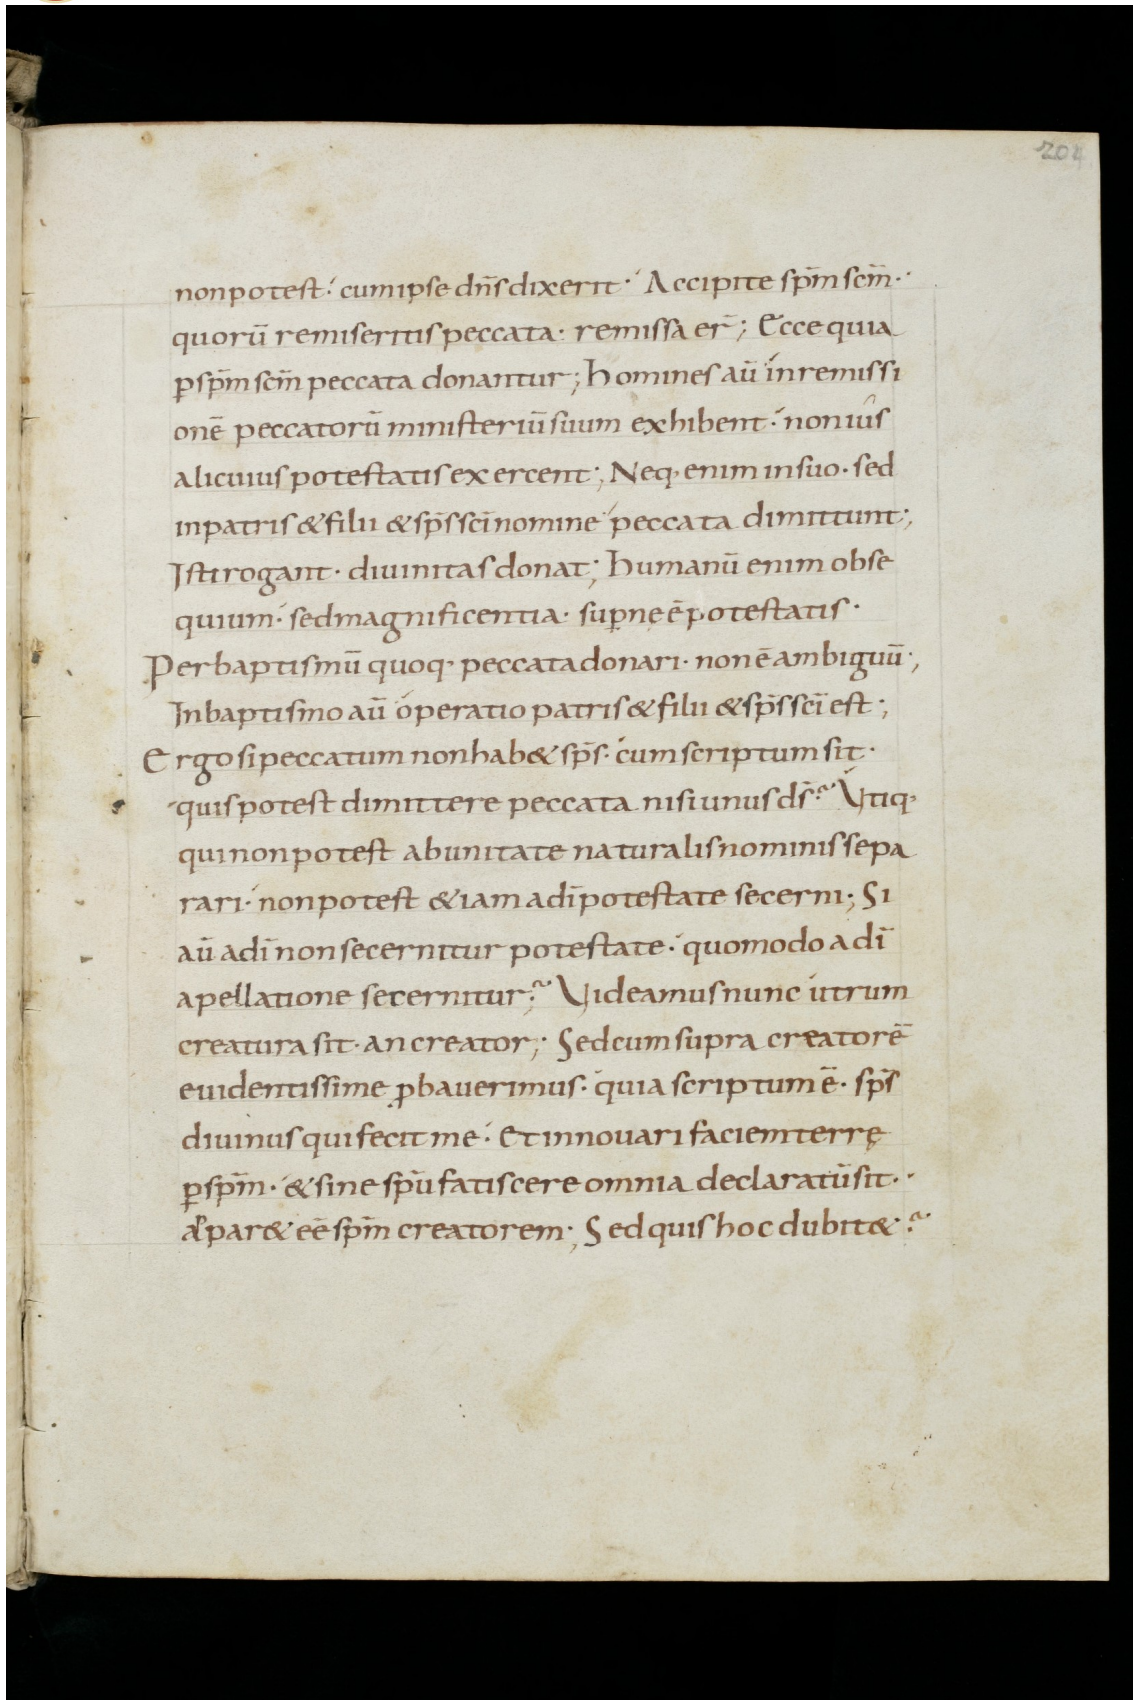 204
non potest· cum ipse dn̄s dixerit· Accipite sp̄m scm̄·
quorū remiseritis peccata· remissa er̄; Ecce quia
p̲ sp̄m scm̄ peccata donantur; homines aū in remissi
onē peccatorū ministeriū suum exhibent· non ius
alicuius potestatis exercent; Neq· enim in suo· sed
in patris & filii & sp̄s sci̅ nomine peccata dimittunt;
Isti rogant· divinitas donat; humanū enim obse
quium· sed magnificentia· sup̲nę ē potestatis·
Per baptismū quoq· peccata donari· non ē ambiguū;
In baptismo aū operatio patris & filii & sp̄s sci̅ est;
Ergo si peccatum non hab& sp̄s· cum scriptum sit·
quis potest dimittere peccata nisi unus ds̄? Utiq·
qui non potest ab unitate naturalis nominis sepa
rari· non potest &iam a di̅ potestate secerni; Si
aū a di̅ non secernitur potestate· quomodo a di̅
apellatione secernitur? Videamus nunc utrum
creatura sit· an creator; Sed cum supra creatorē
evidentissime ꝓbaverimus· quia scriptum ē· sp̄s
divinus qui fecit me· Et innovari faciem terrę
p̲ sp̄m· & sine sp̄u fatiscere omnia declaratū sit·
apar& eē sp̄m creatorem; Sed quis hoc dubit&?